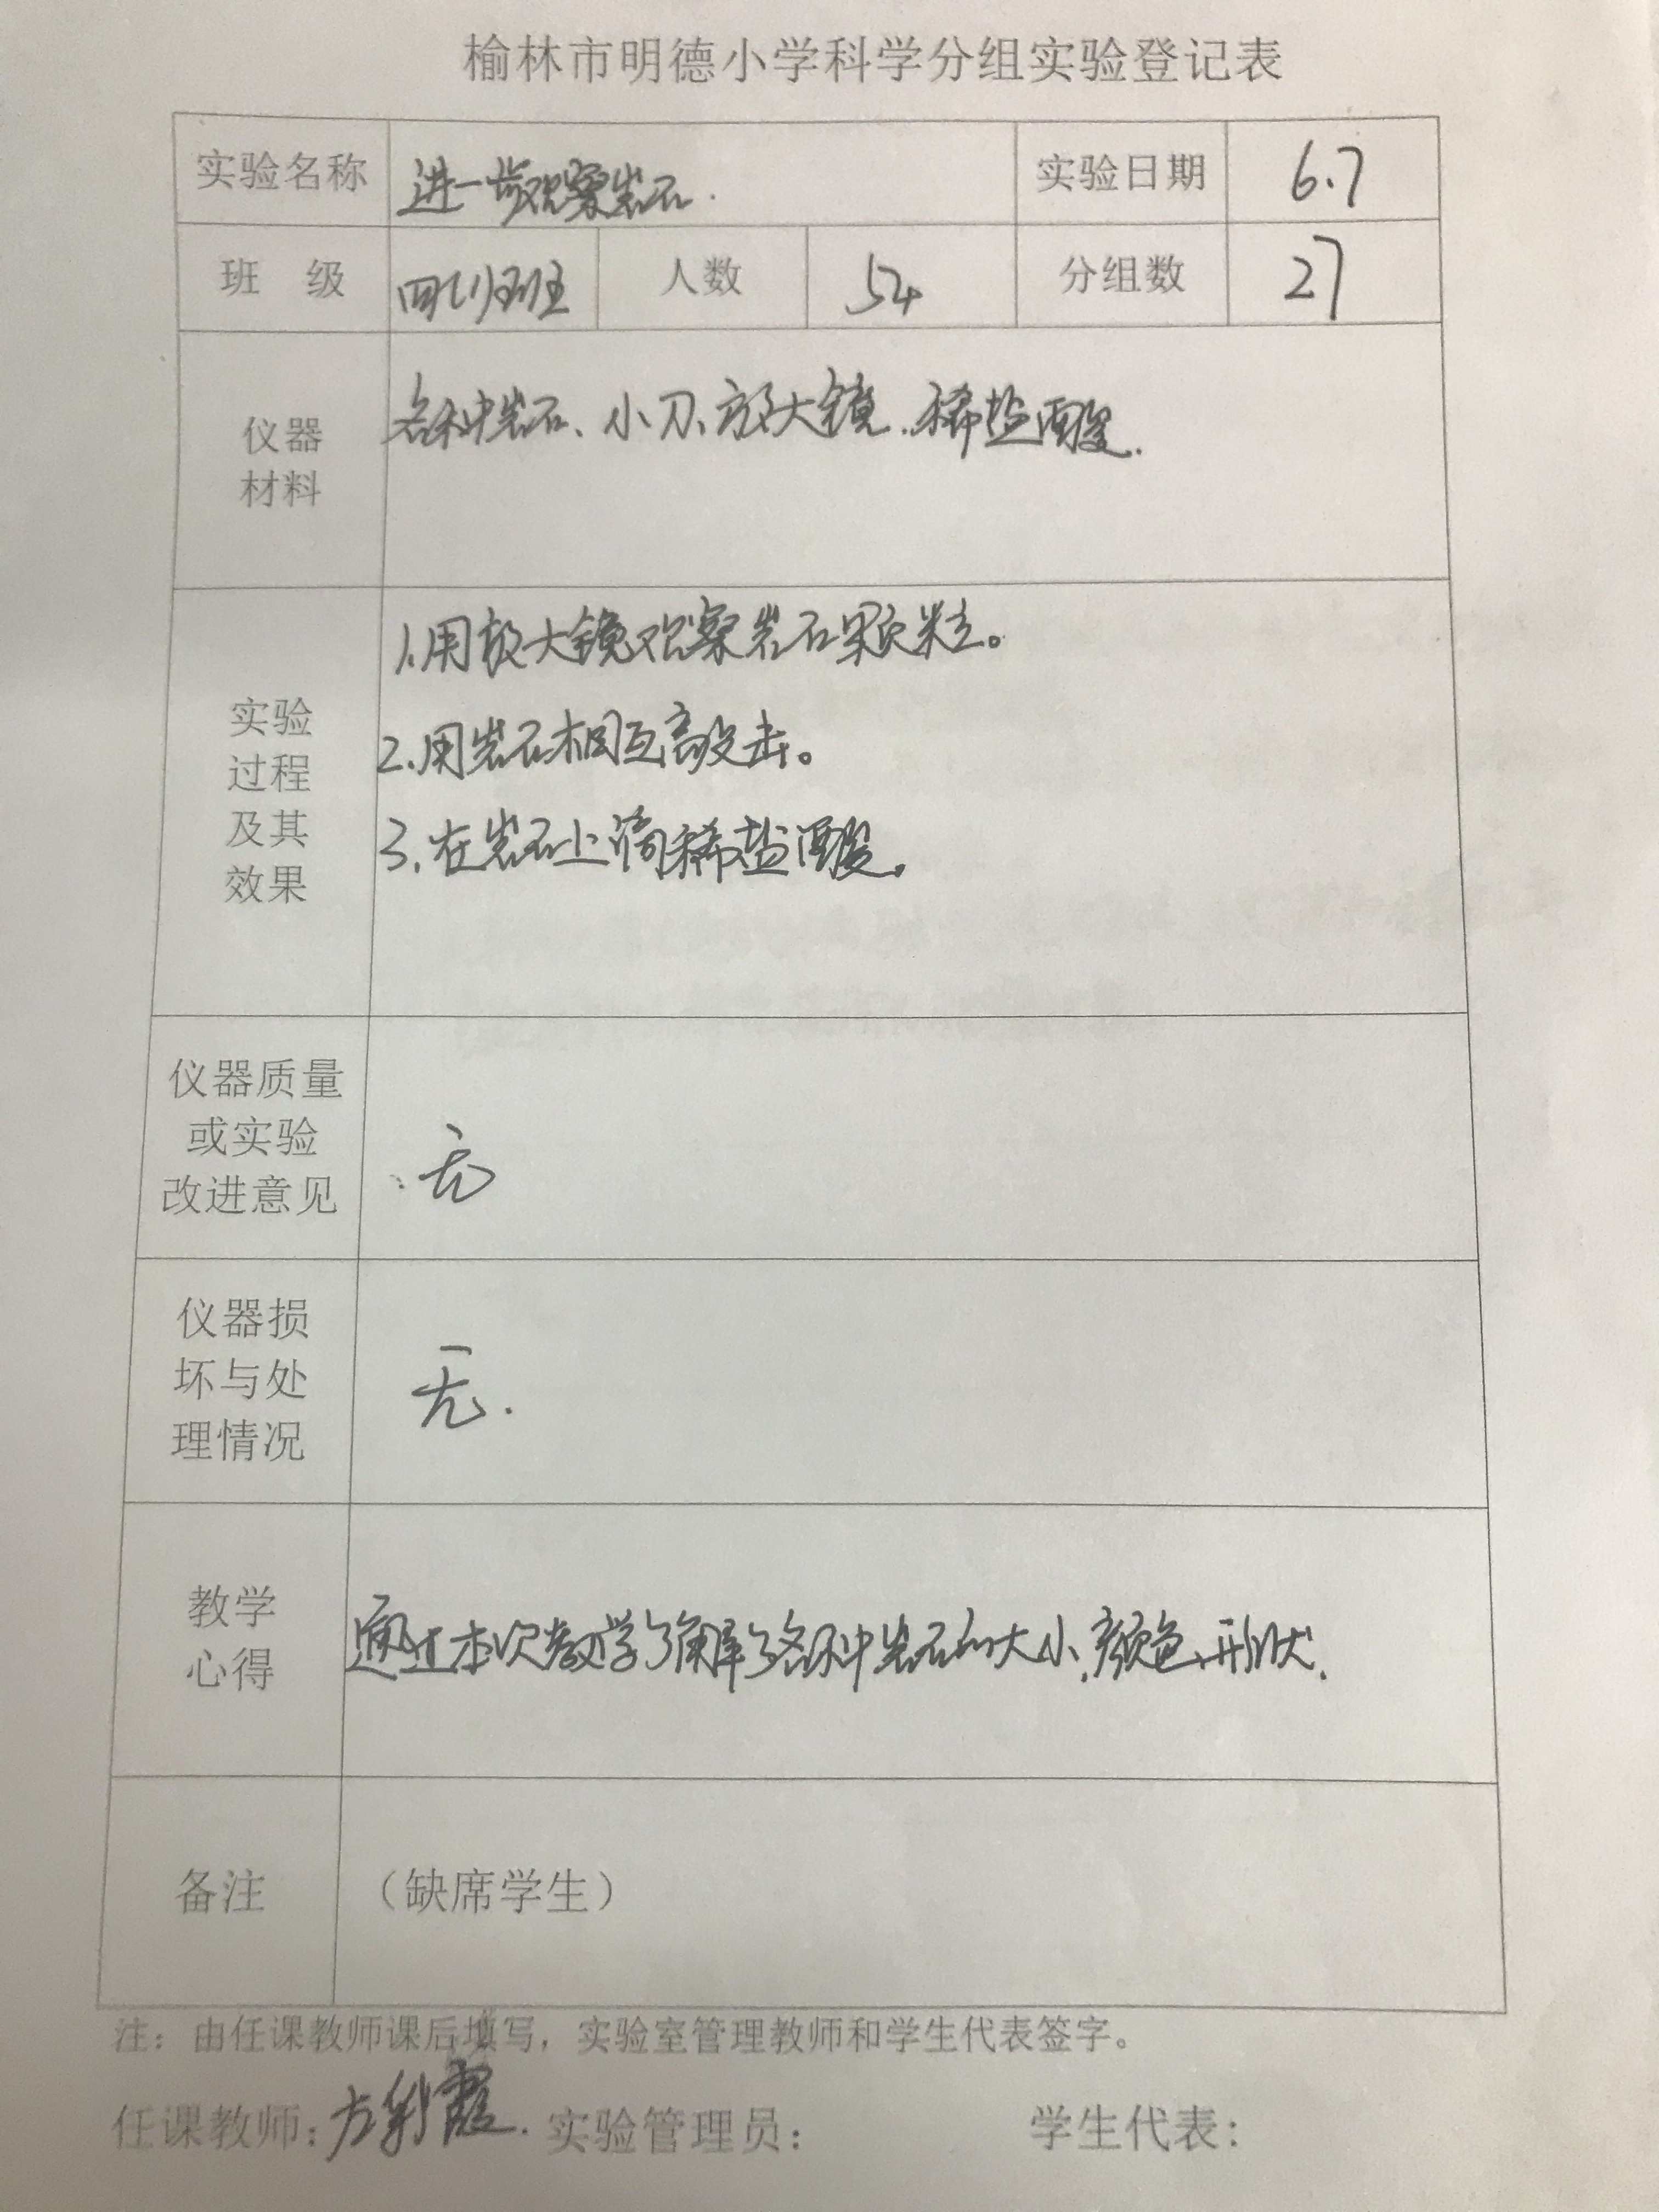 榆林市明德小学科学分组实验登记表
实验名称 进一步观察岩石. 实验日期 6.7
班 级 班 人数 54 分组数 27
仪器
材料
各种岩石、小刀、放大镜、稀盐酸.
实验
过程
及其
效果
1.用放大镜观察岩石颗粒。
2.用岩石相互敲击。
3.在岩石上滴稀盐酸.
仪器质量
或实验
改进意见
无
仪器损
坏与处
理情况
无.
教学
心得
通过本次教学了解了各种岩石的大小、颜色、形状.
备注 （缺席学生）
注：由任课教师课后填写，实验室管理教师和学生代表签字。
任课教师：霞. 实验管理员： 学生代表：